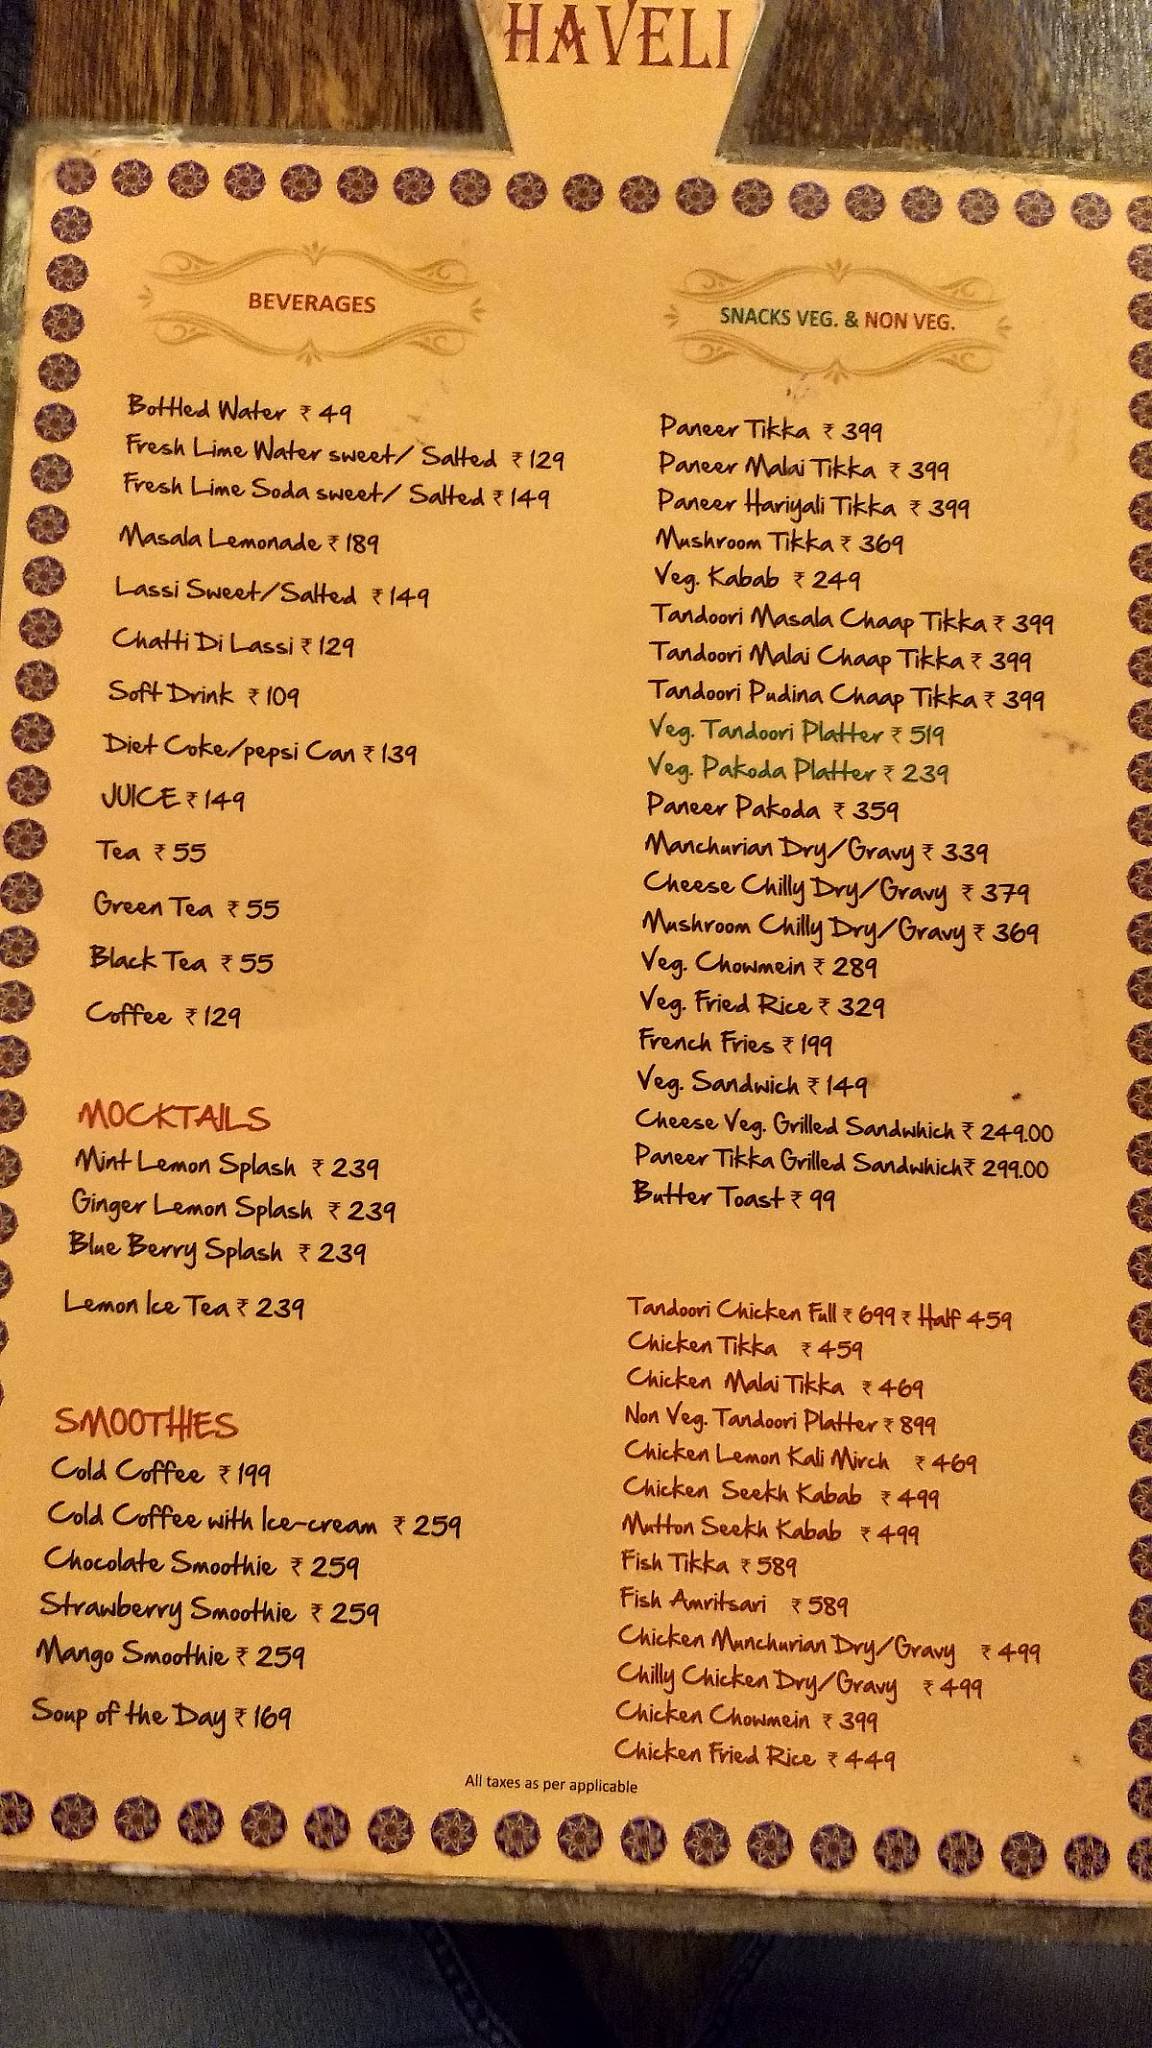 HAVELI
BEVERAGES
Bottled Water ₹ 49
Fresh Lime Water sweet/ Salted ₹ 129
Fresh Lime Soda sweet/ Salted ₹ 149
Masala Lemonade ₹ 189
Lassi Sweet/Salted ₹ 149
Chatti Di Lassi ₹ 129
Soft Drink ₹ 109
Diet Coke/pepsi Can ₹ 139
JUICE ₹ 149
Tea ₹ 55
Green Tea ₹ 55
Black Tea ₹ 55
Coffee ₹ 129
MOCKTAILS
Mint Lemon Splash ₹ 239
Ginger Lemon Splash ₹ 239
Blue Berry Splash ₹ 239
Lemon Ice Tea ₹ 239
SMOOTHIES
Cold Coffee ₹ 199
Cold Coffee with Ice-cream ₹ 259
Chocolate Smoothie ₹ 259
Strawberry Smoothie ₹ 259
Mango Smoothie ₹ 259
Soup of the Day ₹ 169
SNACKS VEG. & NON VEG.
Paneer Tikka ₹ 399
Paneer Malai Tikka ₹ 399
Paneer Hariyali Tikka ₹ 399
Mushroom Tikka ₹ 369
Veg. Kabab ₹ 249
Tandoori Masala Chaap Tikka ₹ 399
Tandoori Malai Chaap Tikka ₹ 399
Tandoori Pudina Chaap Tikka ₹ 399
Veg. Tandoori Platter ₹ 519
Veg. Pakoda Platter ₹ 239
Paneer Pakoda ₹ 359
Manchurian Dry/Gravy ₹ 339
Cheese Chilly Dry/Gravy ₹ 379
Mushroom Chilly Dry/Gravy ₹ 369
Veg. Chowmein ₹ 289
Veg. Fried Rice ₹ 329
French Fries ₹ 199
Veg. Sandwich ₹ 149
Cheese Veg. Grilled Sandwhich ₹ 249.00
Paneer Tikka Grilled Sandwhich₹ 299.00
Butter Toast ₹ 99
Tandoori Chicken Full ₹ 699 ₹ Half 459
Chicken Tikka ₹ 459
Chicken Malai Tikka ₹ 469
Non Veg. Tandoori Platter ₹ 899
Chicken Lemon Kali Mirch ₹ 469
Chicken Seekh Kabab ₹ 499
Mutton Seekh Kabab ₹ 499
Fish Tikka ₹ 589
Fish Amritsari ₹ 589
Chicken Munchurian Dry/Gravy ₹ 499
Chilly Chicken Dry/Gravy ₹ 499
Chicken Chowmein ₹ 399
Chicken Fried Rice ₹ 449
All taxes as per applicable